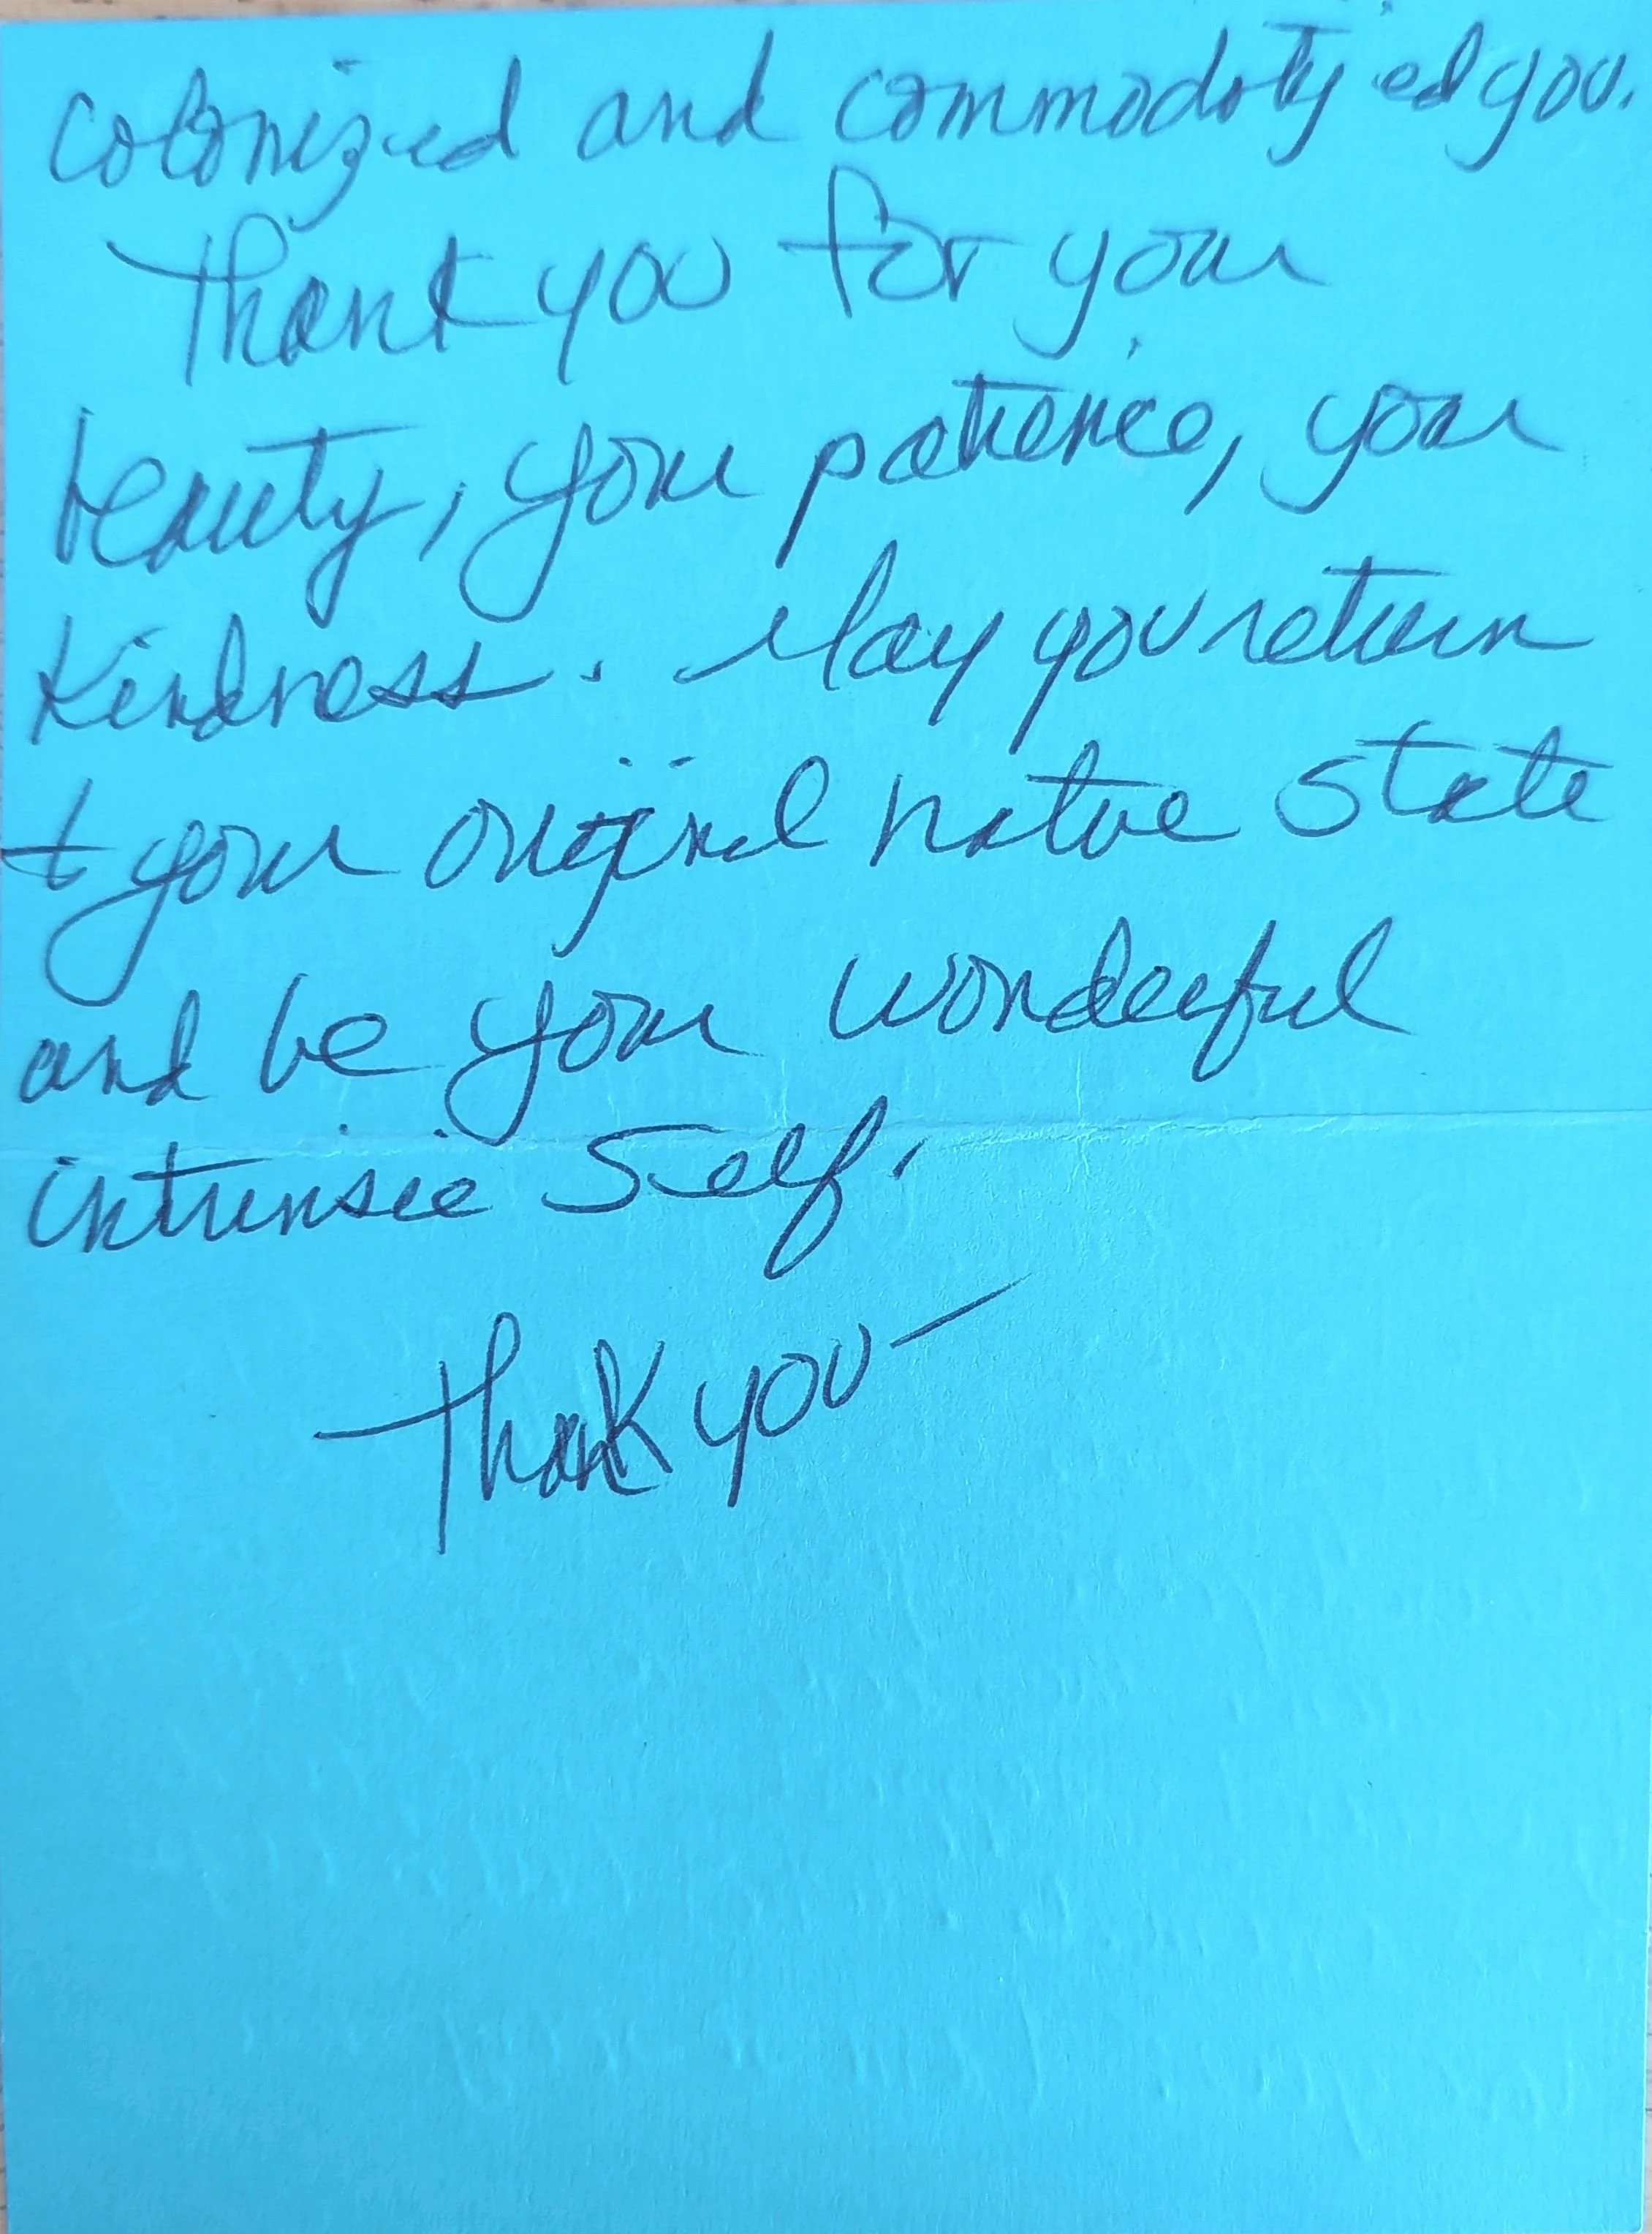 colonized and commodotyed you.
Thank you for your
beauty, your patience, your
kindness. May you return
to your original native state
and be your wonderful
intrinsic self.
Thank you —